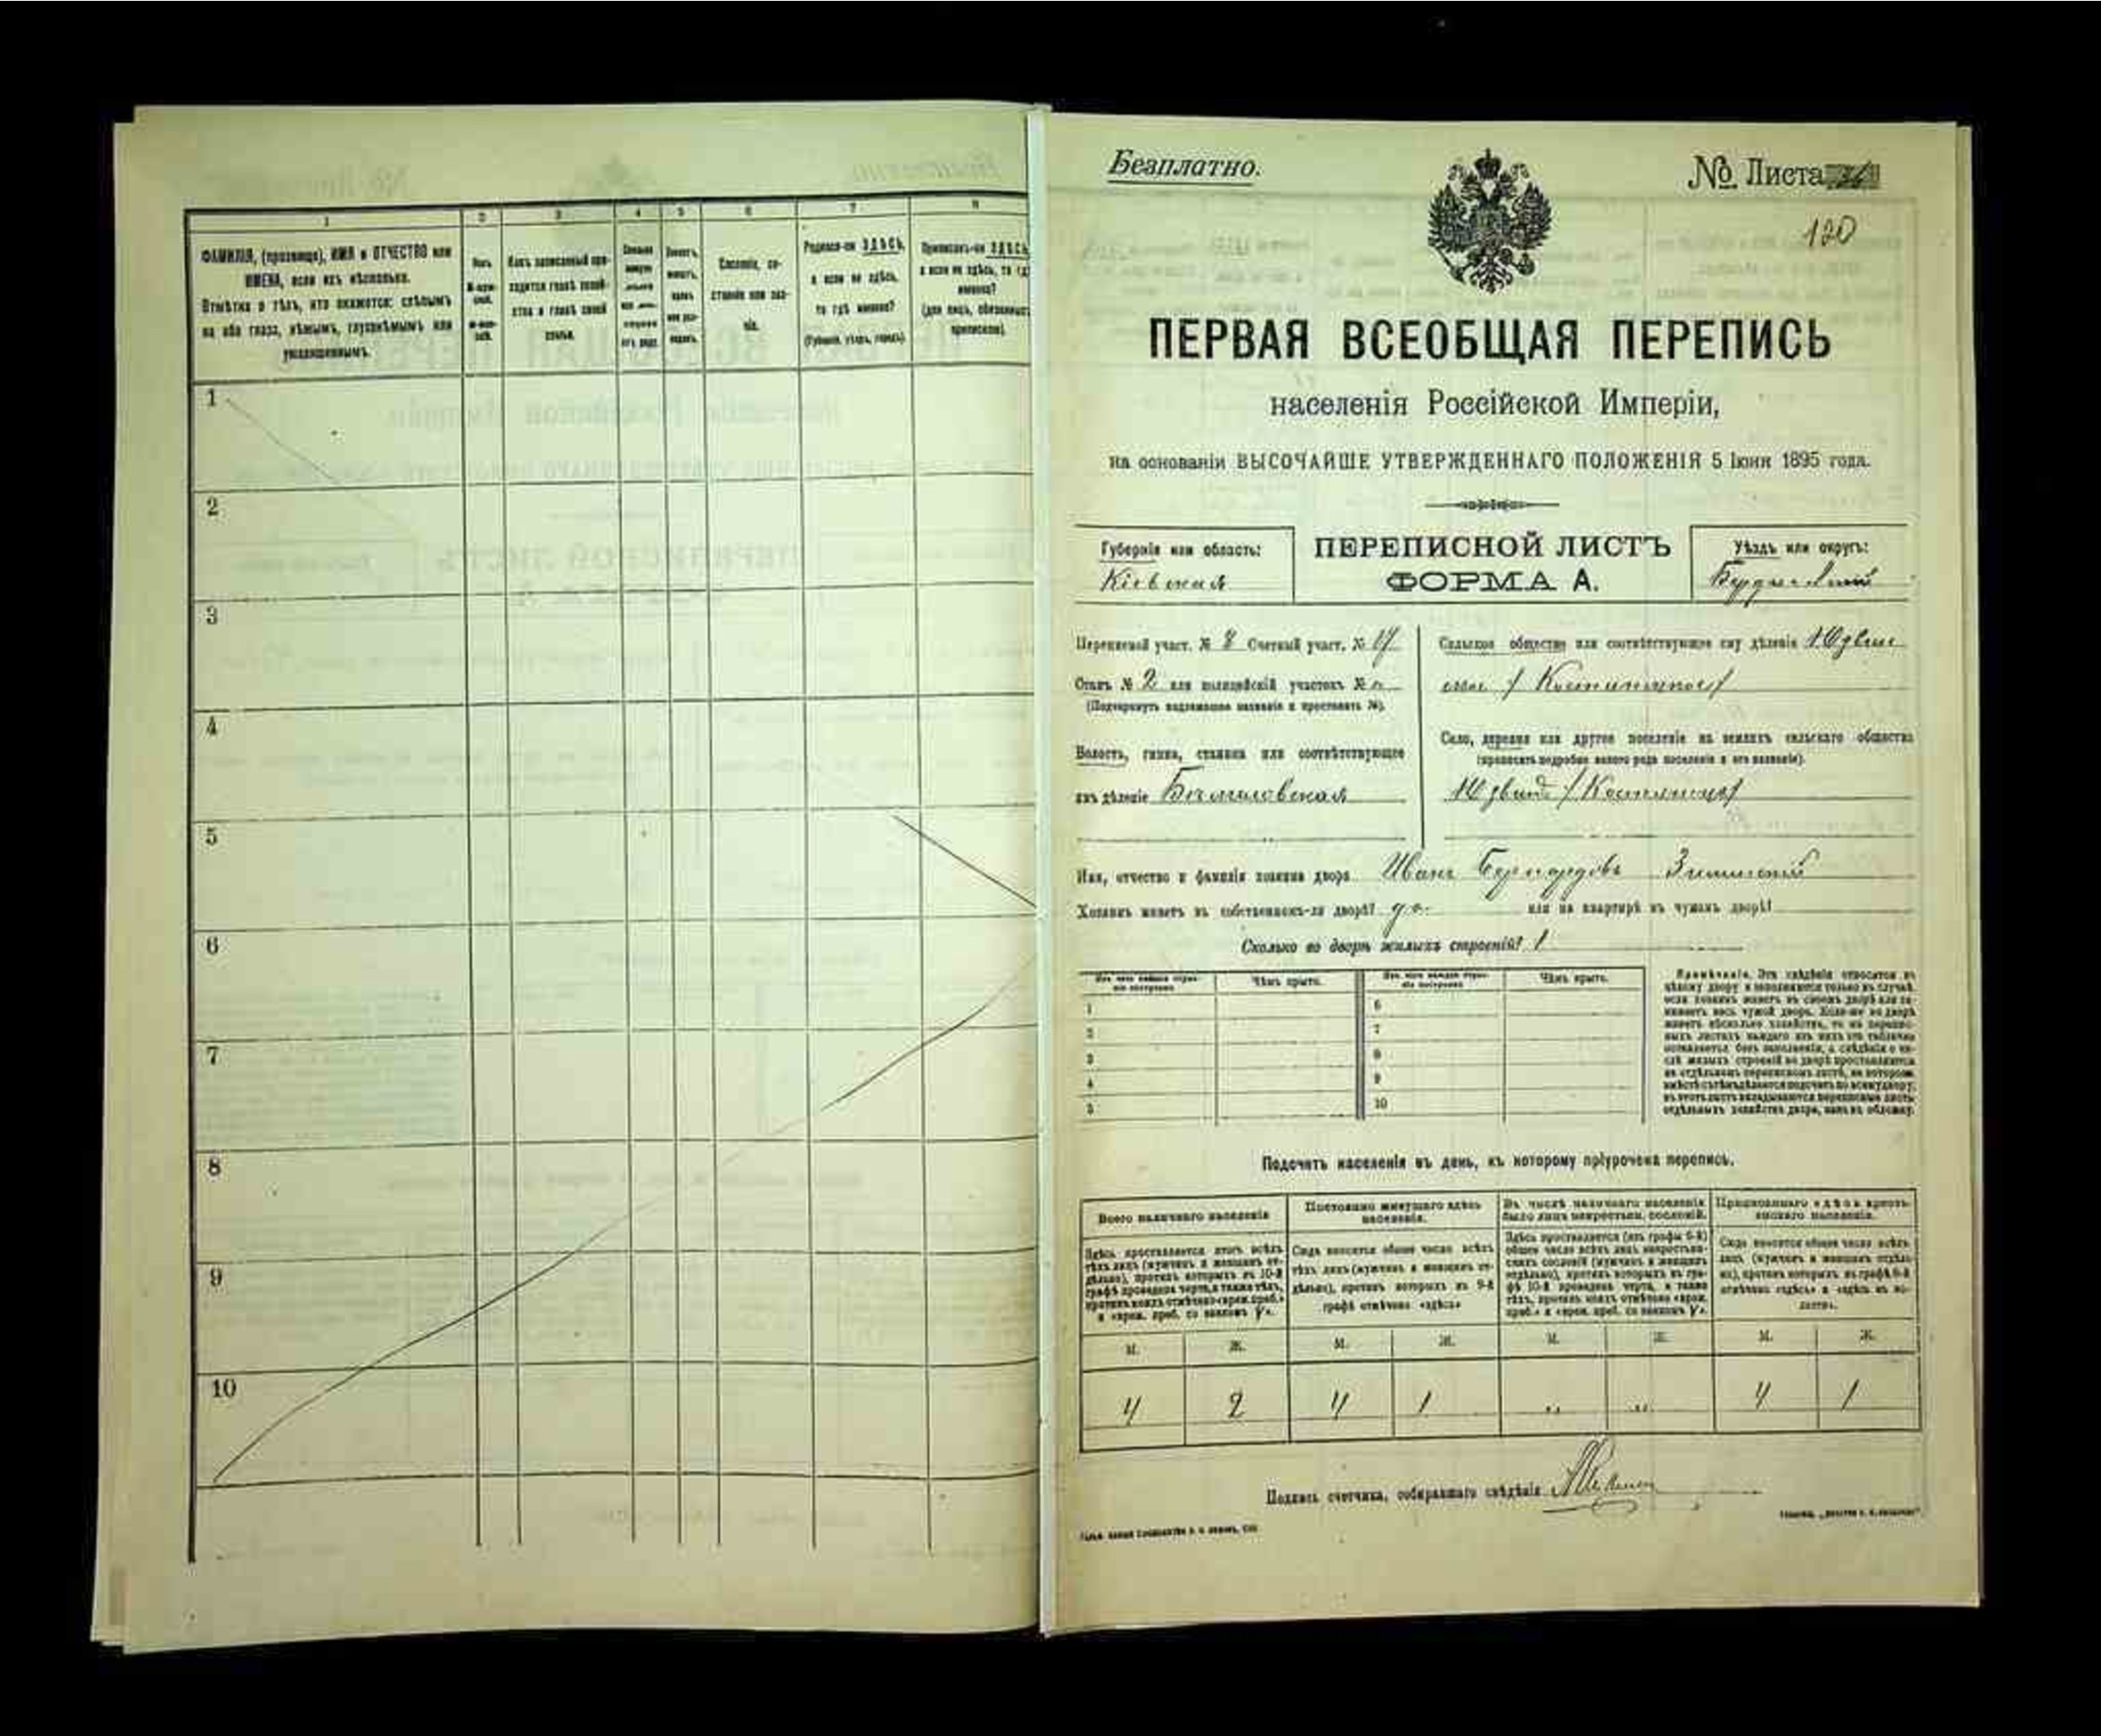 1 2 3 4 5 6 7 8
ФАМИЛІЯ, (прозвище), ИМЯ и ОТЧЕСТВО или
ИМЕНА, если ихъ нѣсколько.
Отмѣтка о тѣхъ, кто окажется: слѣпымъ
на оба глаза, нѣмымъ, глухонѣмымъ или
умалишеннымъ.
Полъ
Какъ записанный при-
ходится главѣ хозяй-
ства и главѣ своей
семьи.
Сословіе, со-
стояніе или зва-
ніе.
Родился-ли ЗДѢСЬ,
а если не здѣсь,
то гдѣ именно?
(Губернія, уѣздъ, городъ).
Приписанъ-ли ЗДѢСЬ,
а если не здѣсь, то гдѣ
именно?
(для лицъ, обязанныхъ
припиской).
1
2
3
4
5
6
7
8
9
10
Безплатно.
№ Листа
120
ПЕРВАЯ ВСЕОБЩАЯ ПЕРЕПИСЬ
населенія Россійской Имперіи,
на основаніи ВЫСОЧАЙШЕ УТВЕРЖДЕННАГО ПОЛОЖЕНІЯ 5 Іюня 1895 года.
Губернія или область:
Кіевская
ПЕРЕПИСНОЙ ЛИСТЪ
ФОРМА А.
Уѣздъ или округъ:
Переписной участ. № 8 Счетный участ. № 17
Станъ № 2 или полицейскій участокъ №
(Подчеркнуть надлежащее названіе и проставить №).
Волость, гмина, станица или соотвѣтствующее
имъ дѣленіе
Сельское общество или соотвѣтствующее ему дѣленіе
Село, деревня или другое поселеніе на земляхъ сельскаго общества
(прописать подробно какого рода поселеніе и его названіе).
Имя, отчество и фамилія хозяина двора Иванъ
Хозяинъ живетъ въ собственномъ-ли дворѣ? да или на квартирѣ въ чужомъ дворѣ?
Сколько во дворѣ жилыхъ строеній? 1
Изъ чего каждое строе-
ніе построено
Чѣмъ крыто.
Изъ чего каждое строе-
ніе построено
Чѣмъ крыто.
1 6
2 7
3 8
4 9
5 10
Примѣчаніе. Эти свѣдѣнія относятся къ
цѣлому двору и заполняются только въ случаѣ,
если хозяинъ живетъ въ своемъ дворѣ или за-
нимаетъ весь чужой дворъ. Коли-же во дворѣ
живетъ нѣсколько хозяйствъ, то на перепис-
ныхъ листахъ каждаго изъ нихъ эта табличка
оставляется безъ заполненія, а свѣдѣнія о чи-
слѣ жилыхъ строеній во дворѣ проставляются
на отдѣльномъ переписномъ листѣ, на которомъ
вмѣстѣ съ тѣмъ дѣлается подсчетъ по всему двору;
въ этотъ листъ вкладываются переписные листы
отдѣльныхъ хозяйствъ двора, какъ въ обложку.
Подсчетъ населенія въ день, къ которому пріурочена перепись.
Всего наличнаго населенія
Постоянно живущаго здѣсь
населенія.
Въ числѣ наличнаго населенія
было лицъ некрестьян. сословій.
Приписаннаго здѣсь кресть-
янскаго населенія.
Здѣсь проставляется итогъ всѣхъ
тѣхъ лицъ (мужчинъ и женщинъ от-
дѣльно), противъ которыхъ въ 10-й
графѣ проведена черта, а также тѣхъ,
противъ коихъ отмѣчено «врем. преб.»
и «врем. преб. со знакомъ V».
Сюда вносится общее число всѣхъ
тѣхъ лицъ (мужчинъ и женщинъ от-
дѣльно), противъ которыхъ въ 9-й
графѣ отмѣчено «здѣсь»
Здѣсь проставляется (изъ графы 6-й)
общее число всѣхъ лицъ некрестьян-
скихъ сословій (мужчинъ и женщинъ
отдѣльно), противъ которыхъ въ гра-
фѣ 10-й проведена черта, а также
тѣхъ, противъ коихъ отмѣчено «врем.
преб.» и «врем. преб. со знакомъ V».
Сюда вносится общее число всѣхъ
лицъ (мужчинъ и женщинъ отдѣль-
но), противъ которыхъ въ графѣ 8-й
отмѣчено «здѣсь» и «здѣсь въ во-
лости».
М. Ж. М. Ж. М. Ж. М. Ж.
4 2 4 1 „ „ 4 1
Подпись счетчика, собиравшаго свѣдѣнія